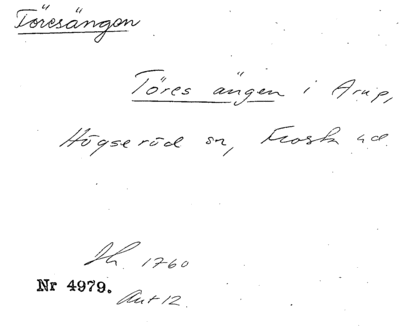 Töresängen
Töres ängen i Arup,
Högseröd sn, Frosta hd.
Sk. 1760
Nr 4979.
Ant 12.